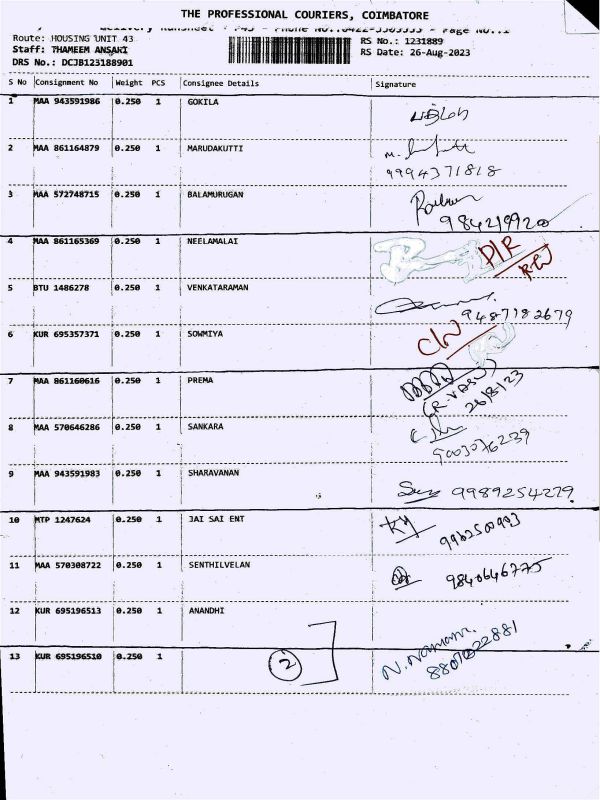 THE PROFESSIONAL COURIERS, COIMBATORE
Delivery Runsheet
Route: HOUSING UNIT 43 RS No.: 1231889
Staff: THAMEEM ANSARI RS Date: 26-Aug-2023
DRS No.: DCJB123188901
S No Consignment No Weight PCS Consignee Details Signature
1 MAA 943591986 0.250 1 GOKILA
2 MAA 861164879 0.250 1 MARUDAKUTTI
9994371818
3 MAA 572748715 0.250 1 BALAMURUGAN
4 MAA 861165369 0.250 1 NEELAMALAI
5 BTU 1486278 0.250 1 VENKATARAMAN
9487182679
6 KUR 695357371 0.250 1 SOWMIYA
7 MAA 861160616 0.250 1 PREMA
26/8/23
8 MAA 570646286 0.250 1 SANKARA
9 MAA 943591983 0.250 1 SHARAVANAN
9989254279
10 MTP 1247624 0.250 1 JAI SAI ENT
11 MAA 570308722 0.250 1 SENTHILVELAN
9840646775
12 KUR 695196513 0.250 1 ANANDHI
13 KUR 695196510 0.250 1
2